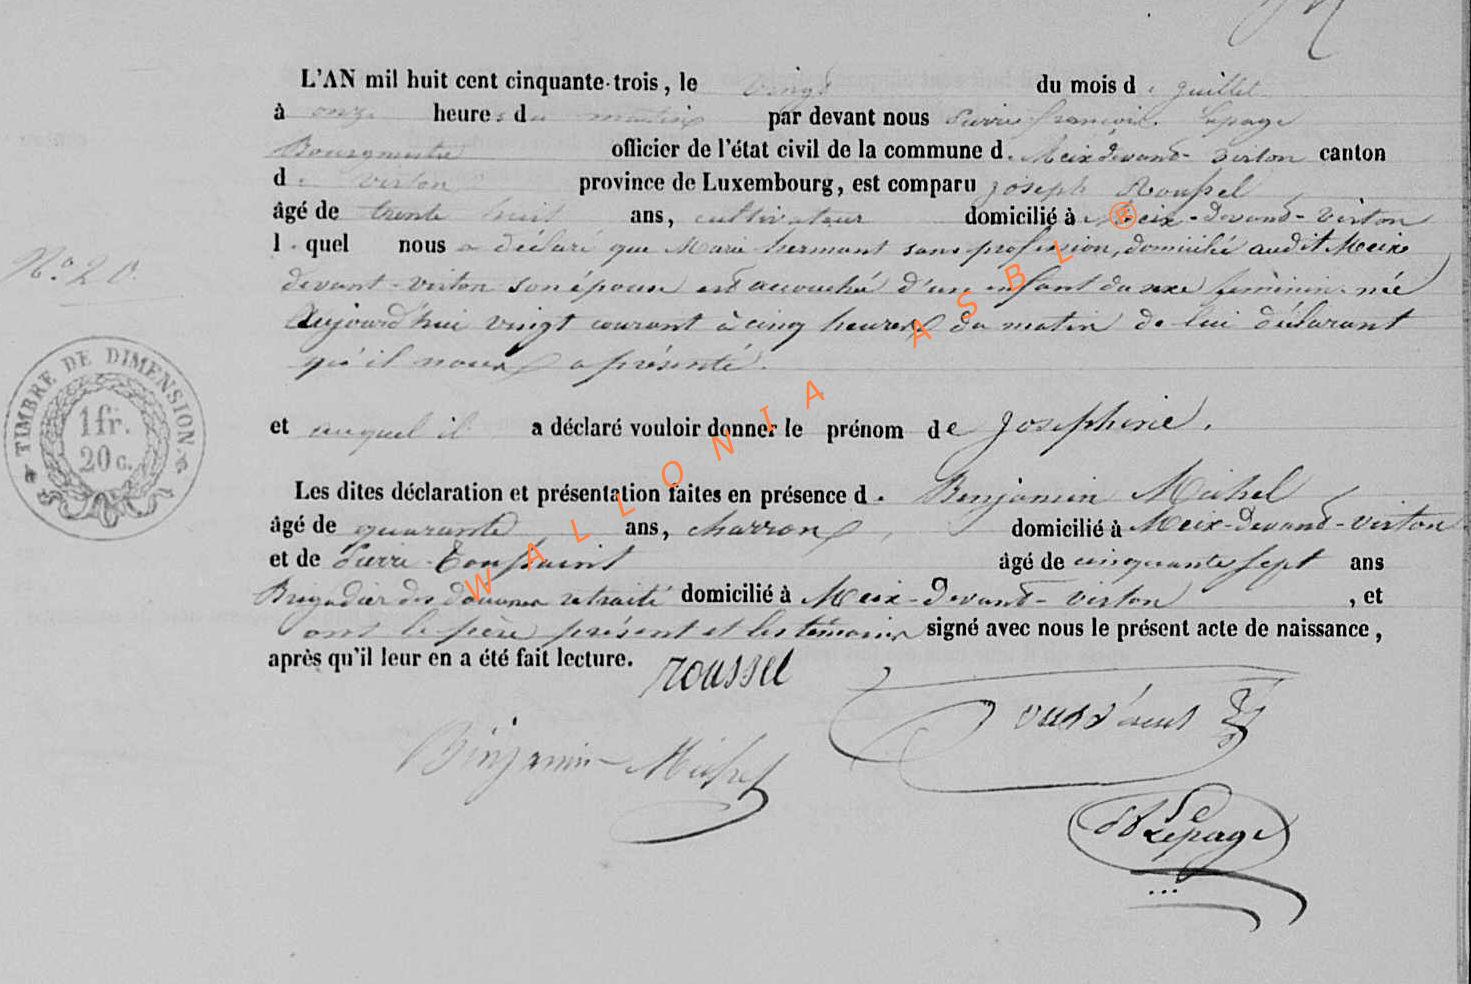 L'AN mil huit cent cinquante-trois, le vingt du mois d. juillet
à onze heures du matin par devant nous Pierre françois Lepage
Bourgmestre officier de l'état civil de la commune d. Meix devant-virton canton
d. virton province de Luxembourg, est comparu joseph Roussel
âgé de trente huit ans, cultivateur domicilié à Meix-devant-virton
l. quel nous a déclaré que Marie hermant sans profession, domiciliée audit Meix
devant-virton son épouse est accouché d'un enfant du sexe féminin né
Aujourd'hui vingt courant à cinq heures du matin de lui déclarant
qu'il nous a présenté.
N.° 20.
TIMBRE DE DIMENSION.
1 fr.
20 c.
et auquel il a déclaré vouloir donner le prénom de Josephine.
Les dites déclaration et présentation faites en présence d. Benjamin Michel
âgé de quarante ans, charron, domicilié à Meix-devant-virton
et de Pierre Toussaint âgé de cinquante sept ans
Brigadier des douanes retraité domicilié à Meix-devant-virton, et
ont le père présent et les témoins signé avec nous le présent acte de naissance,
après qu'il leur en a été fait lecture.
roussel
Benjamin Michel
Lepage
WALLONIA ASBL ®